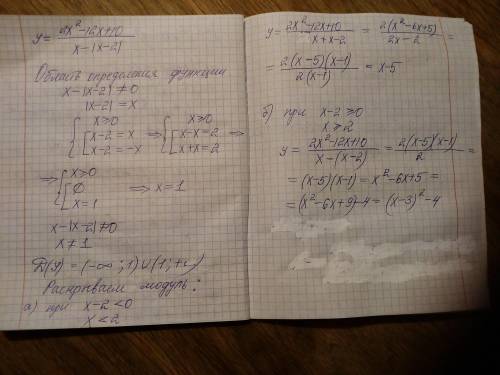 y = 2x²-12x+10 / x-|x-2|
Область определения функции
x-|x-2| ≠ 0
|x-2| = x
{ x≥0 [ x-2=x [ x-2=-x ⇒ { x≥0 [ x-x=2 [ x+x=2 ⇒
⇒ { x≥0 [ ∅ [ x=1 ⇒ x=1
x-|x-2| ≠ 0
x ≠ 1
D(y) = (-∞; 1) ∪ (1; +∞)
Раскрываем модуль:
а) при x-2<0
x<2
y = 2x²-12x+10 / x+x-2 = 2(x²-6x+5) / 2x-2 =
= 2(x-5)(x-1) / 2(x-1) = x-5
б) при x-2≥0
x≥2
y = 2x²-12x+10 / x-(x-2) = 2(x-5)(x-1) / 2 =
= (x-5)(x-1) = x²-6x+5 =
= (x²-6x+9)-4 = (x-3)²-4